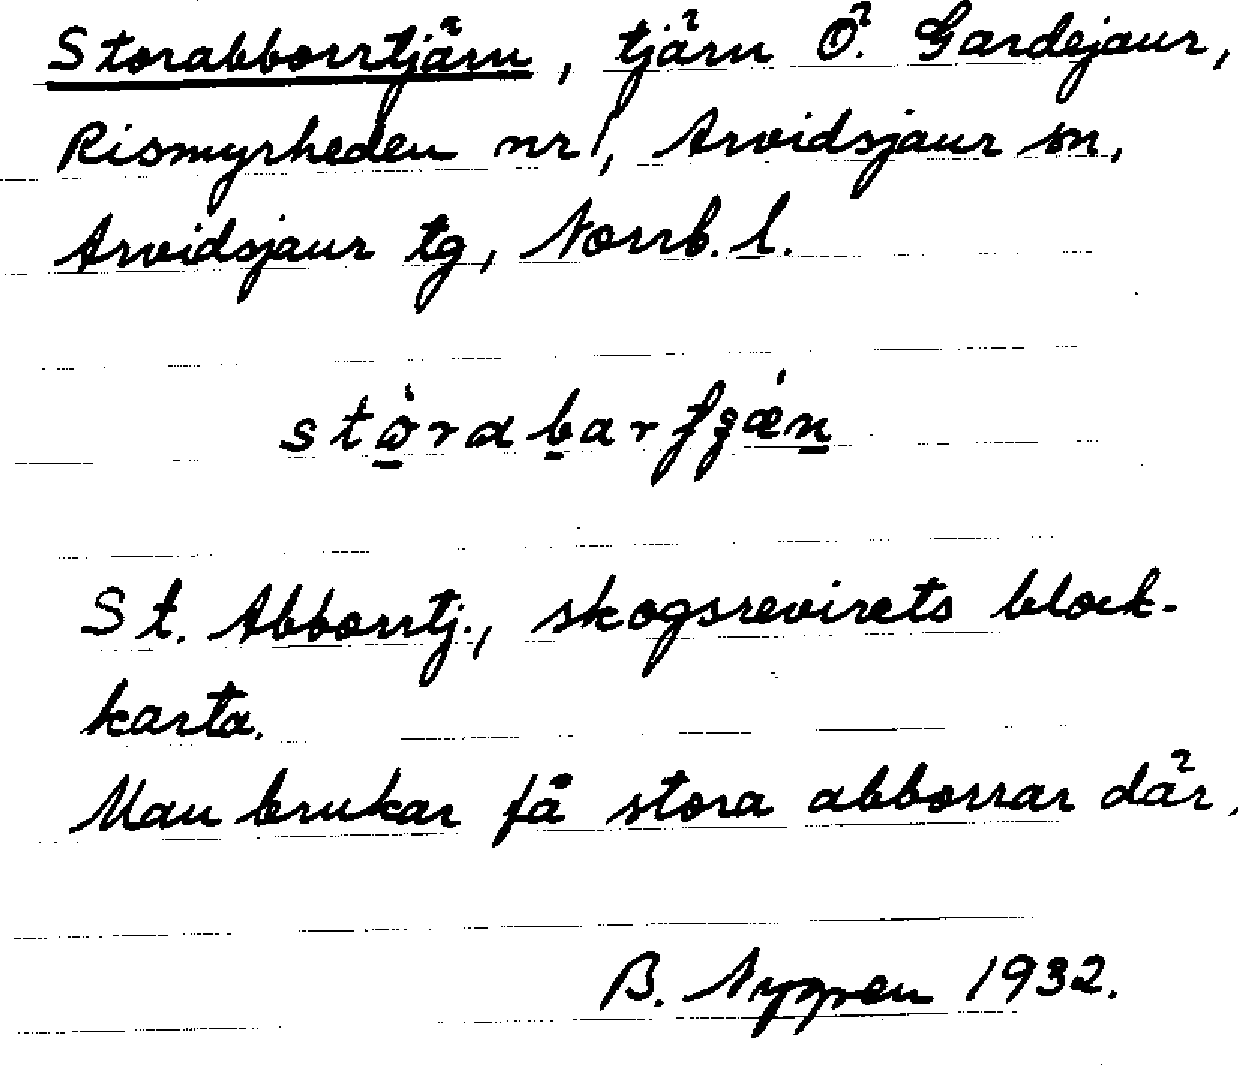 Storabborrtjärn, tjärn Ö. Gardejaur,
Rismyrheden nr 1, Arvidsjaur sn,
Arvidsjaur tg, Norrb. l.
St. Abborrtj., skogsrevirets block-
karta.
Man brukar få stora abborrar där.
B. Nygren 1932.